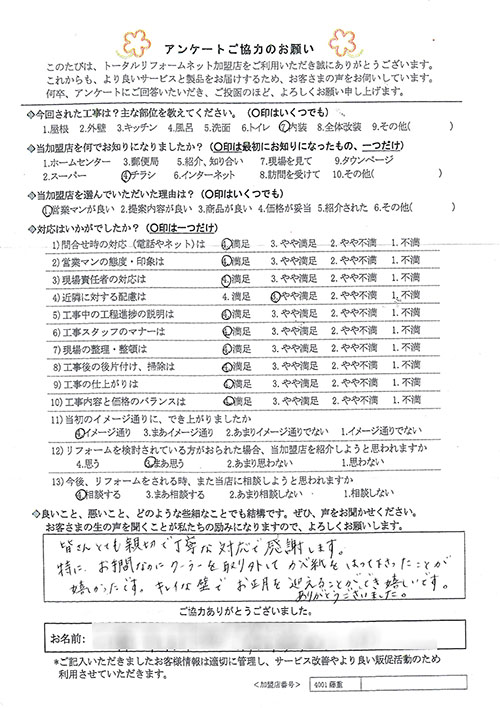 アンケートご協力のお願い
このたびは、トータルリフォームネット加盟店をご利用いただき誠にありがとうございます。
これからも、より良いサービスと製品をお届けするため、お客さまの声をお伺いしています。
何卒、アンケートにご回答いただいき、ご投函のほど、よろしくお願い申し上げます。
◇今回された工事は?主な部位を教えてください。(〇印はいくつでも)
1.屋根 2.外壁 3.キッチン 4.風呂 5.洗面 6.トイレ 7.内装 8.全体改装 9.その他( )
◇当加盟店を何でお知りになりましたか?(〇印は最初にお知りになったもの、一つだけ)
1.ホームセンター 3.郵便局 5.紹介、知り合い 7.現場を見て 9.タウンページ
2.スーパー 4.チラシ 6.インターネット 8.訪問を受けて 10.その他( )
◇当加盟店を選んでいただいた理由は?(〇印はいくつでも)
1.営業マンが良い 2.提案内容が良い 3.商品が良い 4.価格が妥当 5.紹介された 6.その他( )
◇対応はいかがでしたか?(〇印は一つだけ)
1)問合せ時の対応(電話やネット)は 4.満足 3.やや満足 2.やや不満 1.不満
2)営業マンの態度・印象は 4.満足 3.やや満足 2.やや不満 1.不満
3)現場責任者の対応は 4.満足 3.やや満足 2.やや不満 1.不満
4)近隣に対する配慮は 4.満足 3.やや満足 2.やや不満 1.不満
5)工事中の工程進捗の説明は 4.満足 3.やや満足 2.やや不満 1.不満
6)工事スタッフのマナーは 4.満足 3.やや満足 2.やや不満 1.不満
7)現場の整理・整頓は 4.満足 3.やや満足 2.やや不満 1.不満
8)工事後の後片付け、掃除は 4.満足 3.やや満足 2.やや不満 1.不満
9)工事の仕上がりは 4.満足 3.やや満足 2.やや不満 1.不満
10)工事内容と価格のバランスは 4.満足 3.やや満足 2.やや不満 1.不満
11)当初のイメージ通りに、でき上がりましたか
4.イメージ通り 3.まあイメージ通り 2.あまりイメージ通りでない 1.イメージ通りでない
12)リフォームを検討されている方がおられた場合、当加盟店を紹介しようと思われますか
4.思う 3.まあ思う 2.あまり思わない 1.思わない
13)今後、リフォームをされる時、また当店に相談しようと思われますか
4.相談する 3.まあ相談する 2.あまり相談しない 1.相談しない
◇良いこと、悪いこと、どのような些細なことでも結構です。ぜひ、声をお聞かせください。
お客さまの生の声を聞くことが私たちの励みになりますので、よろしくお願いします。
皆さんとても親切で丁寧な対応で感謝します。
特に、お部屋なのにクーラーを取り外してかべ紙をはって下さったことが
嬉かったです。キレイな壁でお正月を迎えることができ嬉しいです。
ありがとうございました。
ご協力ありがとうございました。
お名前:
*ご記入いただきましたお客様情報は適切に管理し、サービス改善やより良い販促活動のため
利用させていただきます。
<加盟店番号> 4001藤重